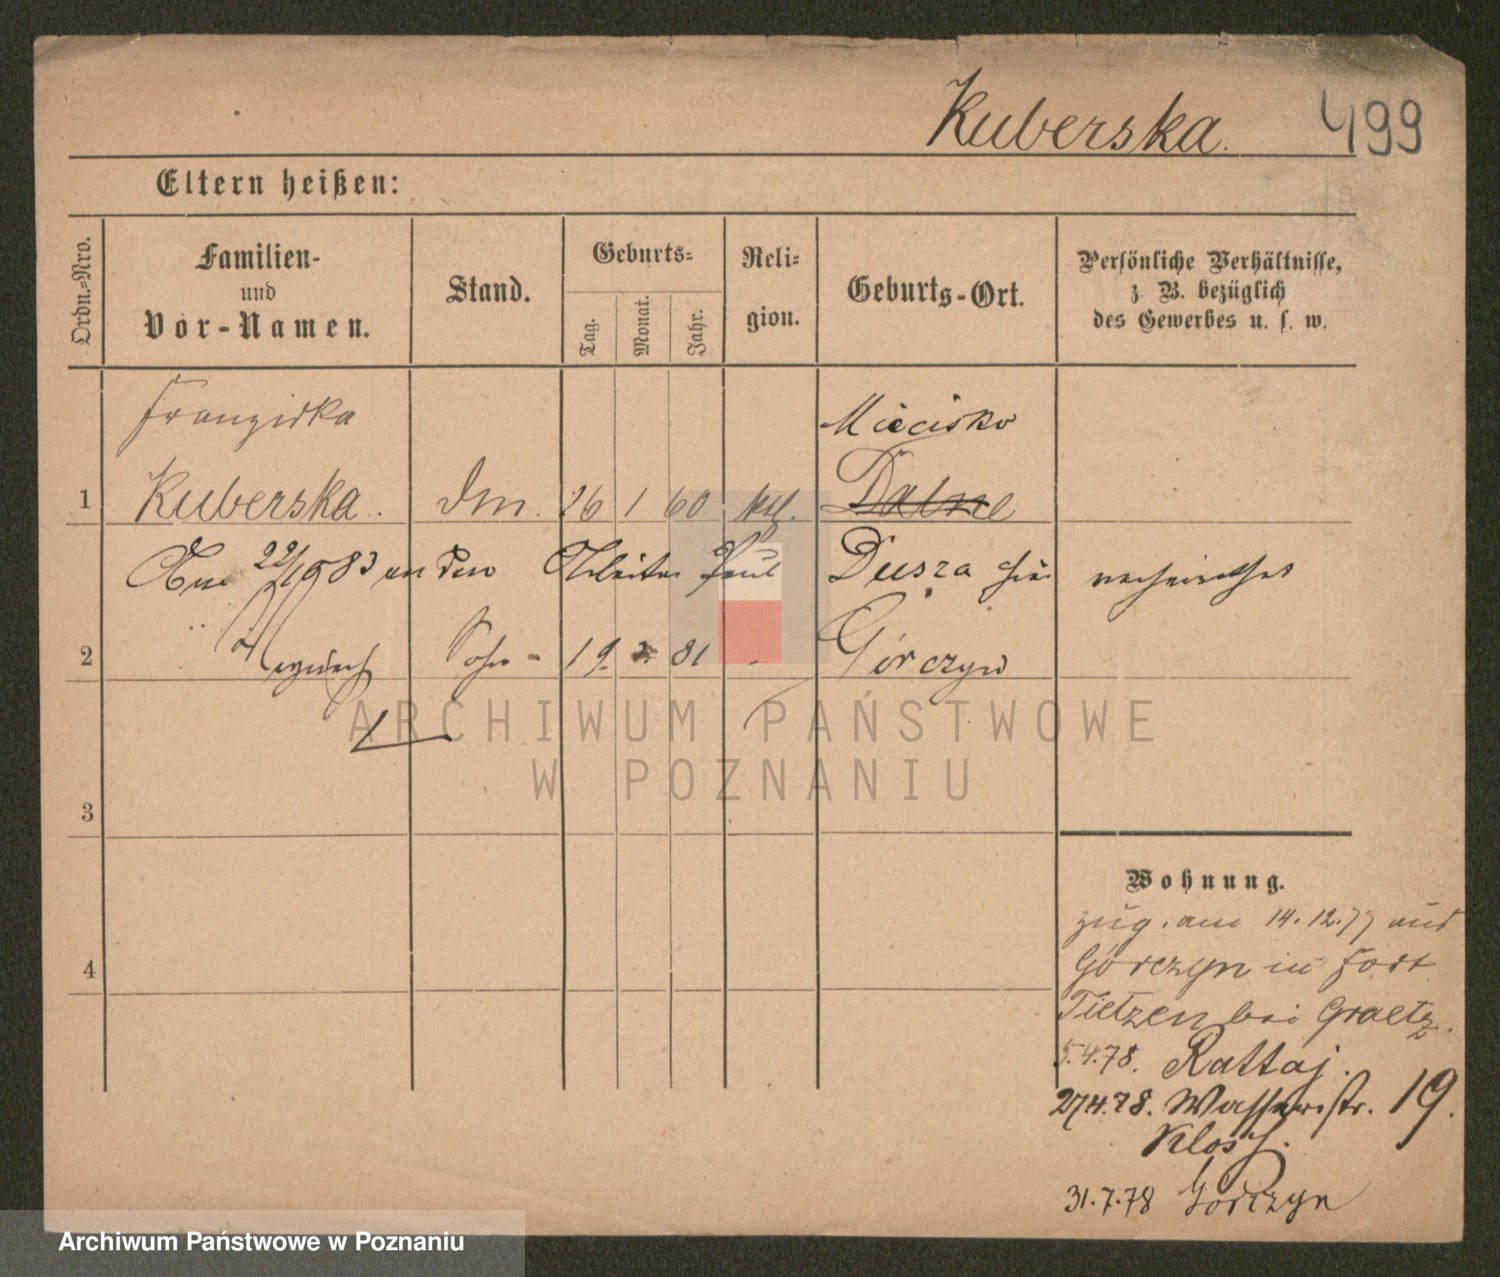 Kuberska. 499
Eltern heißen:
Ordn.=Nro.
Familien-
und
Vor-Namen.
Stand.
Geburts=
Tag.
Monat.
Jahr.
Reli=
gion.
Geburts-Ort.
Persönliche Verhältnisse,
z. B. bezüglich
des Gewerbes u. s. w.
Franziska Miecisko
1 Kuberska. 26 1 60 ktl. Dalne
Am 22/1083 an den Arbeiter Paul Dusza hier verheirathet
2 Sohn - 19. 81 Górczyn
3
4
Wohnung.
zug. am 14.12.77 aus
Górczyn in Fort
Tietzen bei Graetz.
5.4.78. Rattaj.
27.4.78. Wasserstr. 19.
31.7.78 Gorczyn
ARCHIWUM PAŃSTWOWE
W POZNANIU
Archiwum Państwowe w Poznaniu